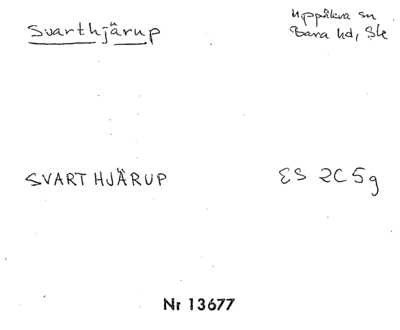 Svarthjärup
Uppåkra sn
Bara hd, Sk
SVARTHJÄRUP
ES 2C5g
Nr 13677